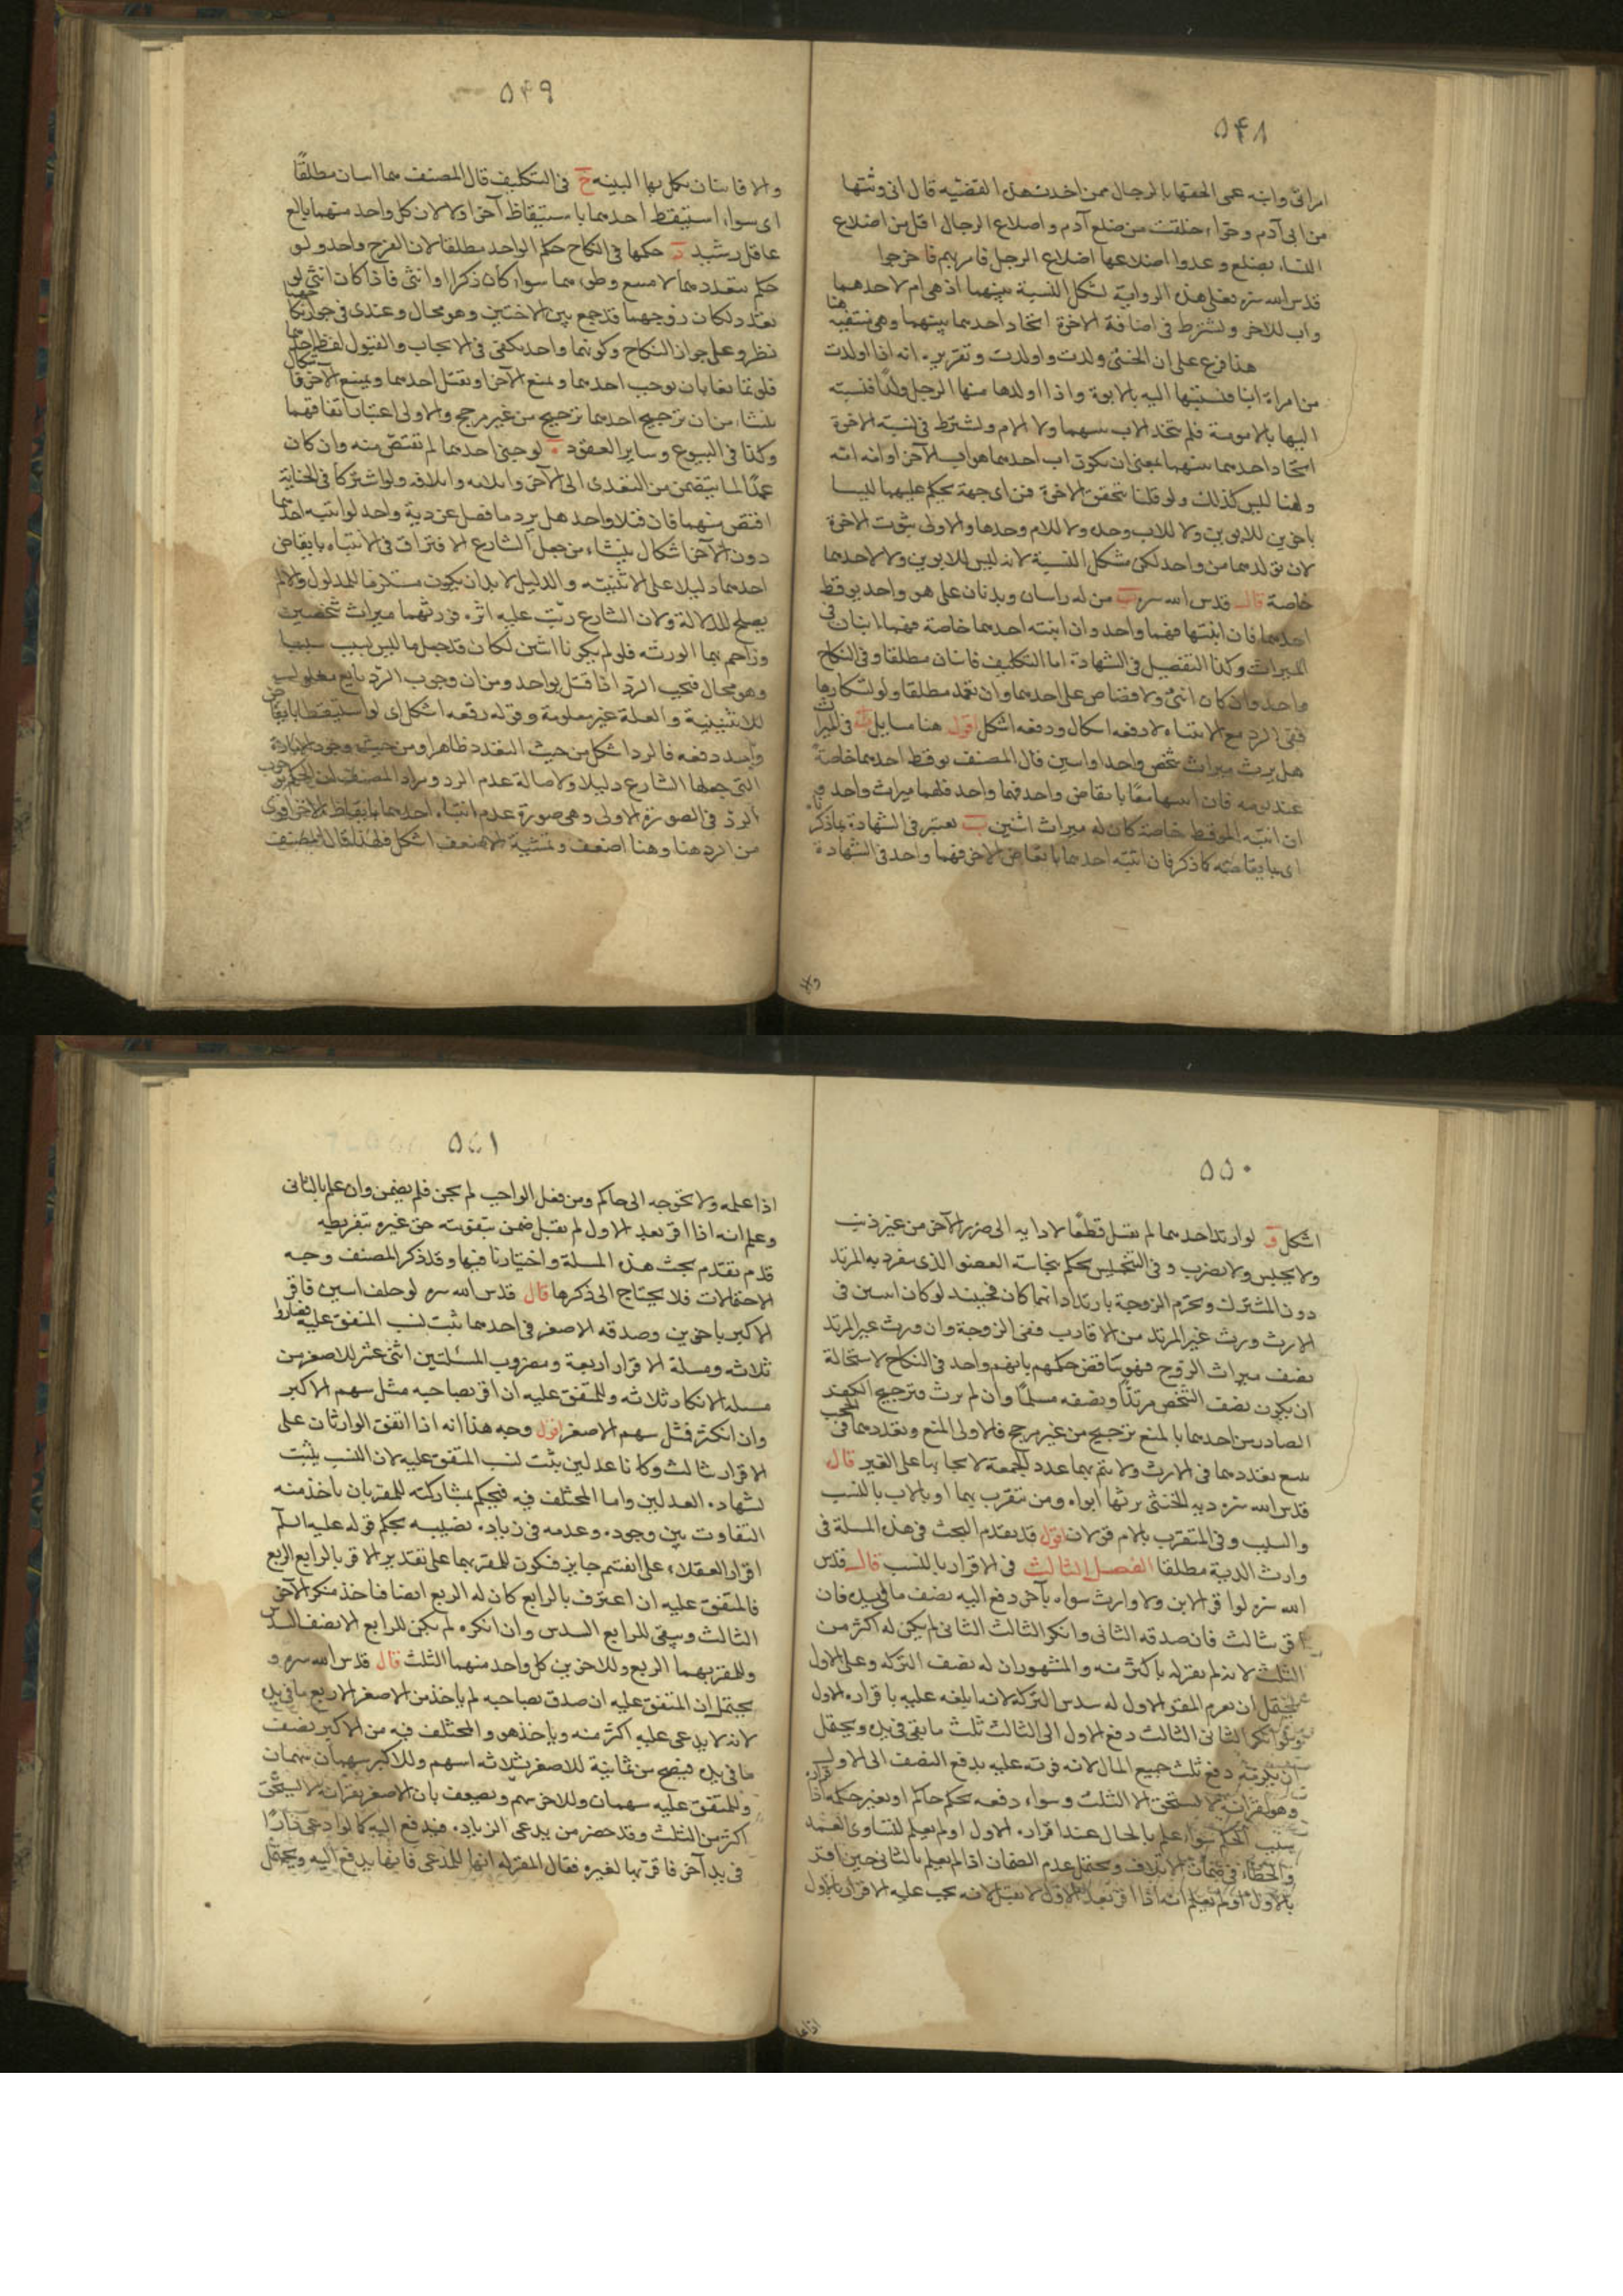 ٥٤٨
امراتى وابنه عمى الحقها بالرجال ممن اخدت هذه القضيه قال انى ورثتها
من ابى آدم وحواء خلقت من ضلع آدم واضلاع الرجال اقل من اضلاع
النساء بضلع وعدوا اضلاعها اضلاع الرجل فامر بهم فاخرجوا
قدس الله سره فعلى هذه الرواية تشكل النسبة بينهما اذ هى ام لاحدهما
واب للاخر ويشترط فى اضافة الاخوة اتحاد احدهما بينهما وهى منتفيه هنا
هذا فرع على ان الخنثى ولدت واولدت وتقريره انه اذا اولدت
من امراة ابنا فنسبتها اليه بالابوة واذا اولدها منها الرجل ولدا فنسبته
اليها بالامومة فلم يتحد الاب بينهما ولا الام ويشترط فى نسبة الاخوة
اتحاد احدهما بينهما بمعنى ان يكون اب احدهما هو اب الآخر او امه امه
وهنا ليس كذلك ولو قلنا بتحقق الاخوة فمن اى جهة يحكم عليهما ليسا
باخوين للابوين ولا للاب وحده ولا للام وحدها والاولى ثبوت الاخوة
لان تولدهما من واحد لكن مشكل النسبة لانه ليس للابوين ولا لاحدهما
خاصة قال قدس الله سره ب من له راسان وبدنان على حقو واحد يوقظ
احدهما فان انتبها فهما واحد وان انتبه احدهما خاصة فهما اثنان فى
الميراث وكذا التفصيل فى الشهادة اما التكليف فاثنان مطلقا وفى النكاح
واحد وان كان انثى ولا قصاص على احدهما وان تعمد مطلقا ولو تشاركا
ففى الرد مع الانتباه لا دفعه اشكال ودفعه اشكل اقول هنا مسايل ا فى الميراث
هل يرث ميراث شخص واحد او اثنين قال المصنف يوقظ احدهما خاصة
عند نومه فان انتبها معا بايقاض واحد فهما واحد فلهما ميراث واحد و
ان انتبه الموقظ خاصة كان له ميراث اثنين ب يعتبر فى الشهادة بما ذكرناه
اى بايقاضه كما ذكر فان انتبه احدهما بايقاض الاخر فهما واحد فى الشهادة
والا
٥٤٩
والا فاثنان يكمل بها البينه ج فى التكليف قال المصنف هما اثنان مطلقا
اى سواء استيقظ احدهما باستيقاظ آخر او لا لان كل واحد منهما بالغ
عاقل رشيد د حكمها فى النكاح حكم الواحد مطلقا لان الفرج واحد ولو
حكم بتعددهما لامتنع وطى هما سواء كان ذكرا او انثى فاذا كان انثى لو
تعدد لكان زوجهما قد جمع بين الاختين وهو محال وعندى فى جواز نكاحهما
نظر وعلى جواز النكاح وكونهما واحد يكفى فى الايجاب والقبول لفظ احدهما
فلو تمانعا بان يوجب احدهما ويمنع الآخر او يقبل احدهما ويمنع الاخر فاشكال
ينشاء من ان ترجيح احدهما ترجيح من غير مرجح والاولى اعتبار اتفاقهما
وكذا فى البيوع وساير العقود ه لو جنى احدهما لم يقتص منه وان كان
عمدا لما يتضمن من التعدى الى الآخر وايلامه واتلافه ولو اشتركا فى الجناية
اقتص منهما فان قتلا واحد هل يرد ما فضل عن دية واحد لو انتبه احدهما
دون الآخر اشكال ينشاء من جعل الشارع الافتراق فى الانتباه بايقاض
احدهما دليلا على الاثنينيه والدليل لا بد ان يكون مستلزما للمدلول والا لم
يصلح للدلالة ولان الشارع رتب عليه اثره فورثهما ميراث شخصين
وزاحم بهما الورثه فلو لم يكونا اثنين لكان قد جعل ما ليس بسبب سببا
وهو محال فيجب الرد اذا قتل بواحد ومن ان وجوب الرد تابع معلول
للاثنينية والعلة غير معلومة وقوله دفعه اشكل اى لو استيقظا بايقاض
واحد دفعه فالرد اشكل من حيث التعدد ظاهرا ومن حيث وجود الامارة
التى جعلها الشارع دليلا ولاصالة عدم الرد ومراد المصنف ان الحكم بوجوب
الرد فى الصورة الاولى وهى صورة عدم انتباه احدهما بايقاظ الاخر اقوى
من الرد هنا وهنا اضعف وتمشية الاضعف اشكل فلهذا قال المصنف
٥٥٠
اشكل و لو ارتد احدهما لم يقتل قطعا لادايه الى ضرر الآخر من غير ذنب
ولا يحبس ولا يضرب وفى التنجيس يحكم بنجاسة العضو الذى ينفرد به المرتد
دون المشترك وتحرم الزوجة بارتداد ايهما كان فحينئذ لو كان اثنين فى
الارث ورث غير المرتد من الاقارب ففى الزوجة وان ورث غير المرتد
نصف ميراث الزوج فهو يناقض حكمهم بانهم واحد فى النكاح لاستحالة
ان يكون نصف الشخص مرتدا ونصفه مسلما وان لم يرث فترجيح الكفر
الصادر من احدهما بالمنع ترجيح من غير مرجح فالاولى المنع وتعددهما فى الحجب
يتبع تعددهما فى الارث ولا يتم بهما عدد الجمعة لايجابها على الغير قال
قدس الله سره دية الخنثى يرثها ابواه ومن يتقرب بهما او بالاب بالنسب
والسبب وفى المتقرب بالام قولان اقول قد تقدم البحث فى هذه المسلة فى
وارث الدية مطلقا الفصل الثالث فى الاقرار بالنسب قال قدس
الله سره لو اقر الابن ولا وارث سواه بآخر دفع اليه نصف ما فى يده فان
اقر بثالث فان صدقه الثانى وانكر الثالث الثانى لم يكن له اكثر من
الثلث لانه لم يقر له باكثر منه والمشهور ان له نصف التركه وعلى الاول
يحتمل ان يغرم المقر الاول له سدس التركة لانه اتلفه عليه باقراره الاول
ولو انكر الثانى الثالث دفع الاول الى الثالث ثلث ما بقى فى يده ويحتمل
ان يلزمه دفع ثلث جميع المال لانه فوته عليه بدفع النصف الى الاول
وهو يقر انه لا يستحق الا الثلث وسواء دفعه بحكم حاكم او بغير حكمه اذا اقراره
سبب الحكم سواء علم بالحال عند اقراره الاول او لم يعلم لتساوى العمد
والخطاء فى ضمان الاتلاف ويحتمل عدم الضمان اذا لم يعلم بالثانى حين اقر
بالاول او لم يعلم انه اذا اقر بعد الاول لا يقبل لانه يجب عليه الاقرار بالاول
اذا علمه
٥٥١
اذا علمه ولا تخوجه الى حاكم ومن فعل الواجب لم يجن فلم يضمن وان علم بالثانى
وعلم انه اذا اقر بعد الاول لم يقبل ضمن بتفويته حق غيره بتفريطه
قد تقدم بحث هذه المسلة واختيارنا فيها وقد ذكر المصنف وجه
الاحتمالات فلا يحتاج الى ذكرها قال قدس الله سره لو خلف اثنين فاقر
الاكبر باخوين وصدقه الاصغر فى احدهما ثبت نسب المتفق عليه فصاروا
ثلاثه ومسلة الاقرار اربعة ومضروب المسئلتين اثنى عشر للاصغر من
مسله الانكار ثلاثه وللمتفق عليه ان اقر بصاحبه مثل سهم الاكبر
وان انكر فمثل سهم الاصغر اقول وجه هذا انه اذا اتفق الوارثان على
الاقرار بثالث وكانا عدلين يثبت نسب المتفق عليه لان النسب يثبت
بشهادة العدلين واما المختلف فيه فيحكم بمشاركته للمقر بان ياخذ منه
التفاوت بين وجوده وعدمه فى زياده نصيبه بحكم قوله عليه السلم
اقرار العقلاء على انفسهم جايز فيكون للمقر بهما على تقدير الاقرار بالرابع الربع
فالمتفق عليه ان اعترف بالرابع كان له الربع ايضا فياخذ منكر الآخر
الثالث ويبقى للرابع السدس وان انكره لم يكن للرابع الا نصف السدس
وللمقر بهما الربع وللاخرين كل واحد منهما الثلث قال قدس الله سره و
يحتمل ان المتفق عليه ان صدق بصاحبه لم ياخذ من الاصغر الا ربع ما فى يده
لانه لا يدعى عليه اكثر منه وياخذ هو والمختلف فيه من الاكبر نصف
ما فى يده فيصح من ثمانية للاصغر ثلاثه اسهم وللاكبر سهمان سهمان
وللمتفق عليه سهمان وللاخر سهم ويضعف بان الاصغر يقر انه لا يستحق
اكثر من الثلث وقد حضر من يدعى الزياده فيدفع اليه كما لو ادعى دارا
فى يد آخر فاقر بها لغيره فقال المقر له انها للمدعى فانها يدفع اليه ويحتمل